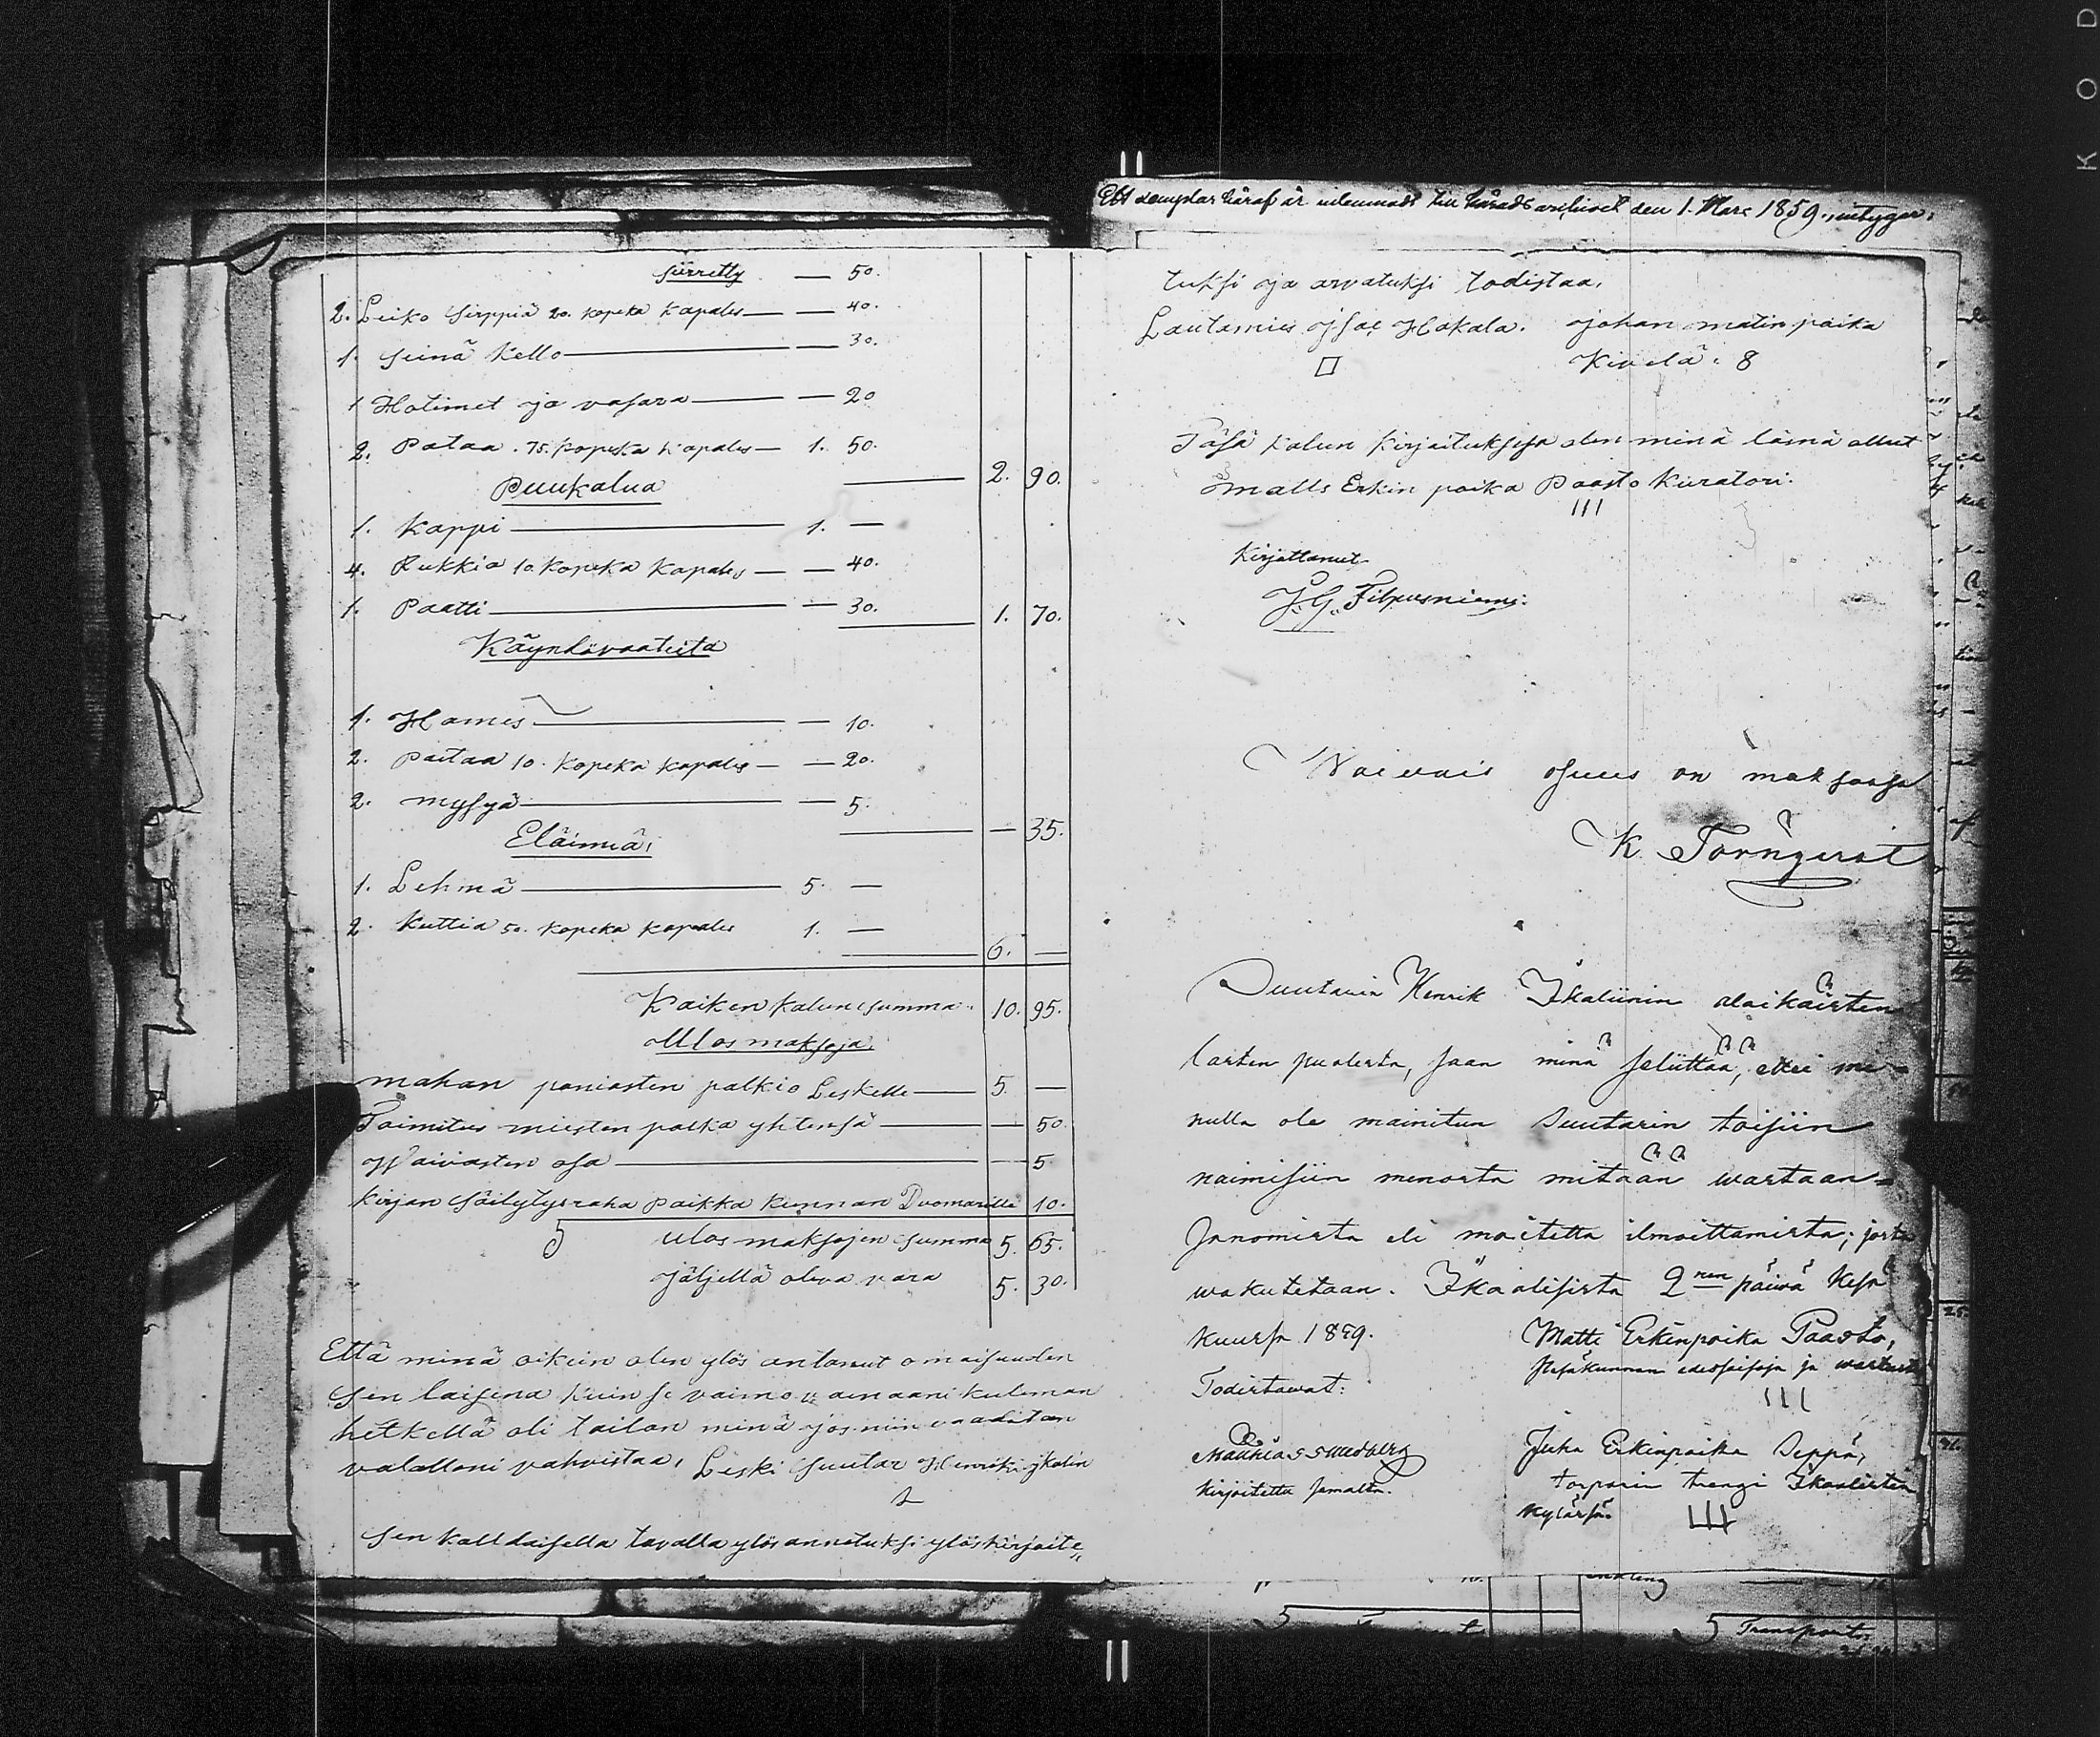 siirretty — 50.
2. Leiko sirppiä 20. kopeka kapales — — 40.
1. seinä kello — — 30.
1 Hotimet ja vasara — — 20
2. Pataa . 75. kopeka kapales — 1. 50.
2. 90.
Puukalua
1. kappi — 1. —
4. Rukkia 10 kopeka kapales — — 40.
1. Paatti — — 30.
1. 70.
Käyndövaateita
1. Hames — — 10.
2. Paitaa 10. kopeka kapales — — 20.
2. mysyä — — 5.
— 35.
Eläimiä,
1. Lehmä — 5. —
2. kuttia 50. kopeka kapales 1. —
6. —
Kaiken kalun summa. 10. 95.
Ulos maksoja,
mahan paniasten palkio Leskelle — 5. —
Toimitus miesten palka yhtensä — — 50.
Waivasten osa — — 5.
kirjan säilytys raha paikka kunnan Duomarille 10.
ulos maksojen summa 5. 65.
jäljellä oleva vara 5. 30.
Että minä oikein olen ylös antanut omaisuuden
sen laisena kuin se vaimo vainaani kuleman
hetkellä oli tailan minä jos niin vaaditan
valallani vahvistaa, Leski suutar Henriki ykalin
Sen kalldaisella tavalla ylösannetuksi ylöskirjoite„
Ett exemplar häraf är inlemnadt till häradsarchivet den 1. Mars 1859., intygar,
tuksi ja arvatuksi todistaa,
Lautamies Isac Hakala. Johan matin poika
Kivelä. 8
Täsä kalun kirjoituksessa olen minä läsnä ollut
Matts Erkin poika Paasto kuratori.
III
Kirjottanut
J. G. Filpusniemi.
Waivais osuus on maksossa
K Törnqvist
Suutarin Henrik Ikaliinin alaikäisten
lasten puolesta, saan minä selittää, ettei mi-
nulla ole mainitun Suutarin toisiin
naimisiin menosta mitään wastaan-
sanomista eli moitetta ilmoittamista; josta
wakutetaan. Ikaalisista 2nen päivä Kesä
kuussa 1859. Matti Erkinpoika Paasto,
Todistawat: III
Mathias Smedberg Juha Erkinpoika Seppä,
kirjoitettu samalta. torparin trengi Ikaalisten
kylässä. III
Transport: